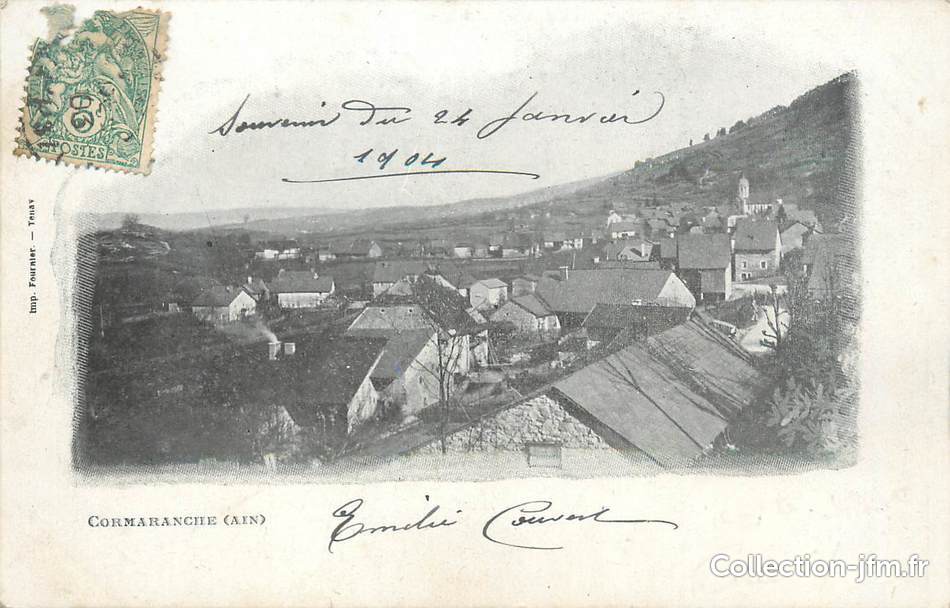 5
POSTES
Souvenir du 24 Janvier
1904
Imp. Fournier. — Tenay
CORMARANCHE (AIN)
Emélie Couvert
Collection-jfm.fr